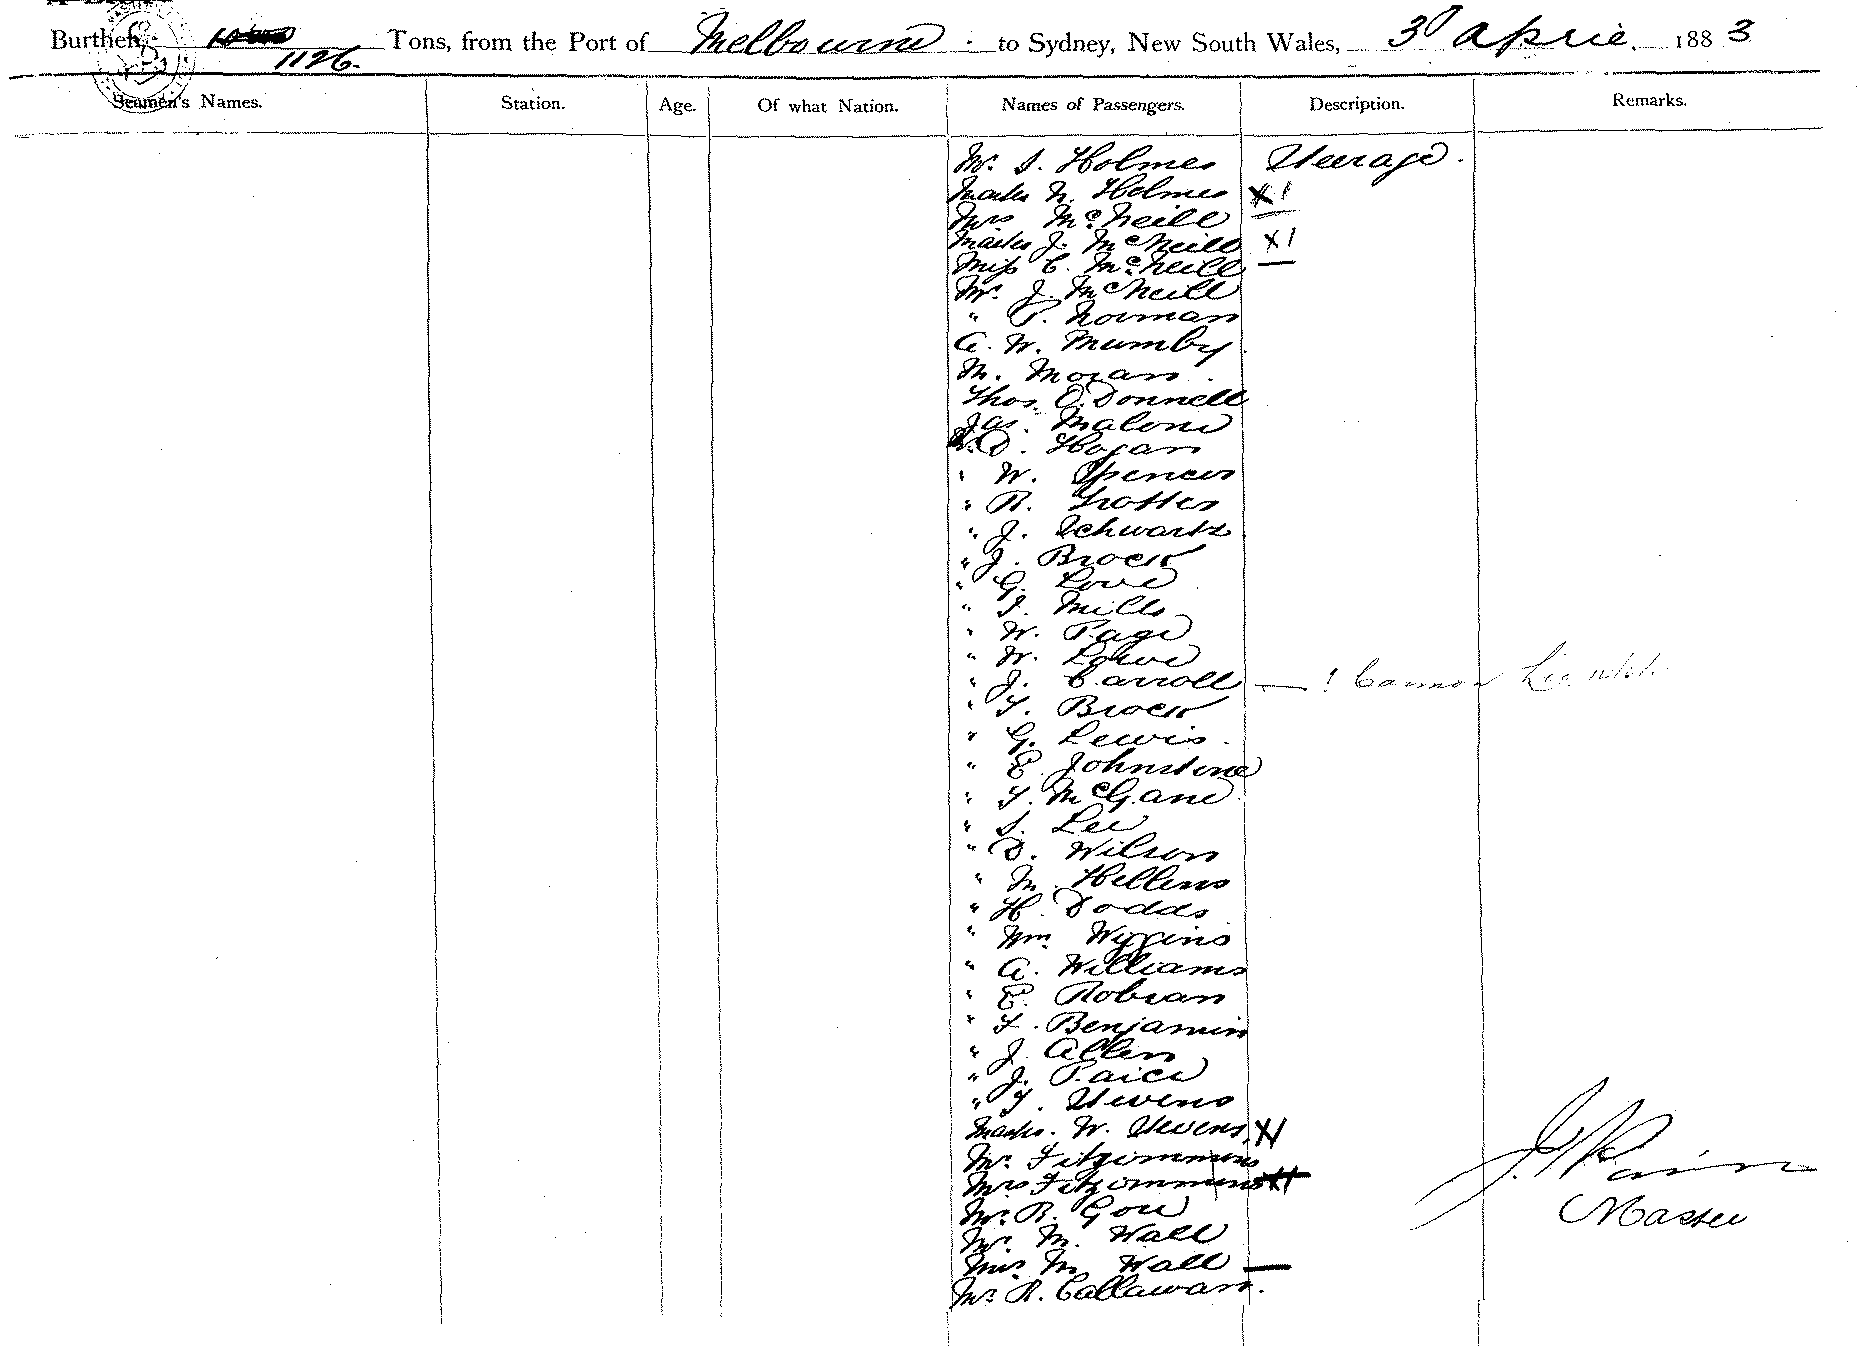 Burthen, 1126. Tons, from the Port of Melbourne. to Sydney, New South Wales, 3d April 1883
Seamen's Names. Station. Age. Of what Nation. Names of Passengers. Description. Remarks.
Mr. S. Holmes Steerage.
Master N. Holmes X1
Mrs McNeill
Master J. McNeill X1
Miss C. McNeill
Mr. J. McNeill
" P. Norman
A. W. Mumby
M. Moran.
Thos. O'Donnell
Jas. Malone
D. Hogan
" W. Spencer
" R. Trotter
" J. Schwartz
" J. Brock
" G. Love
" J. Mills
" W. Page
" W. Lowe
" J. Carroll — 1 Cannon
" T. Brock
" G. Lewis.
" E. Johnstone
" T. McGane
" S. Lee
" D. Wilson
" M. Hellens
" H. Dodds
" Wm. Wiggins
" A. Williams
" E. Robsan
" F. Benjamin
" J. Allen
" J. Paice
" T. Stevens
Master. W. Stevens X1
Mr. Fitzsimmons
Mrs Fitzsimmons X1
Mr. R. Gore
Mr. M. Wall
Mrs M. Wall —
Mr R. Callawan.
Master